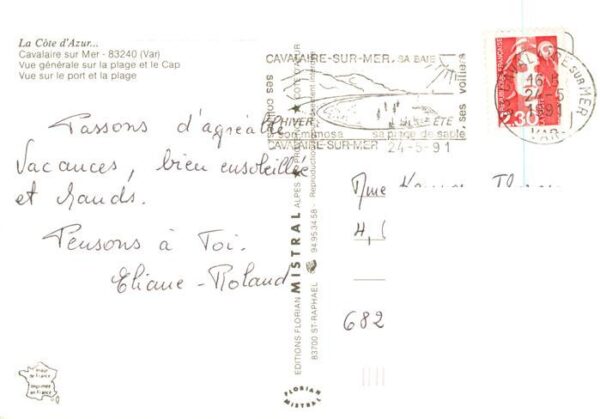 La Côte d'Azur...
Cavalaire sur Mer - 83240 (Var)
Vue générale sur la plage et le Cap
Vue sur le port et la plage
Passons d'agréable
Vacances, bien ensoleillée
et chauds.
Pensons à Toi.
Eliane - Roland
CAVALAIRE-SUR-MER, SA BAIE
ses voiliers
HIVER
ÉTÉ
son mimosa sa plage de sable
CAVALAIRE-SUR-MER 24-5-91
CAVALAIRE SUR MER
16H
24-5
1991
VAR
2,30
EDITIONS FLORIAN MISTRAL ALPES
CÔTE D'AZUR
83700 ST-RAPHAEL 94 95 34 58 - Reproduction
Mme
4,
682
FLORIAN
MISTRAL